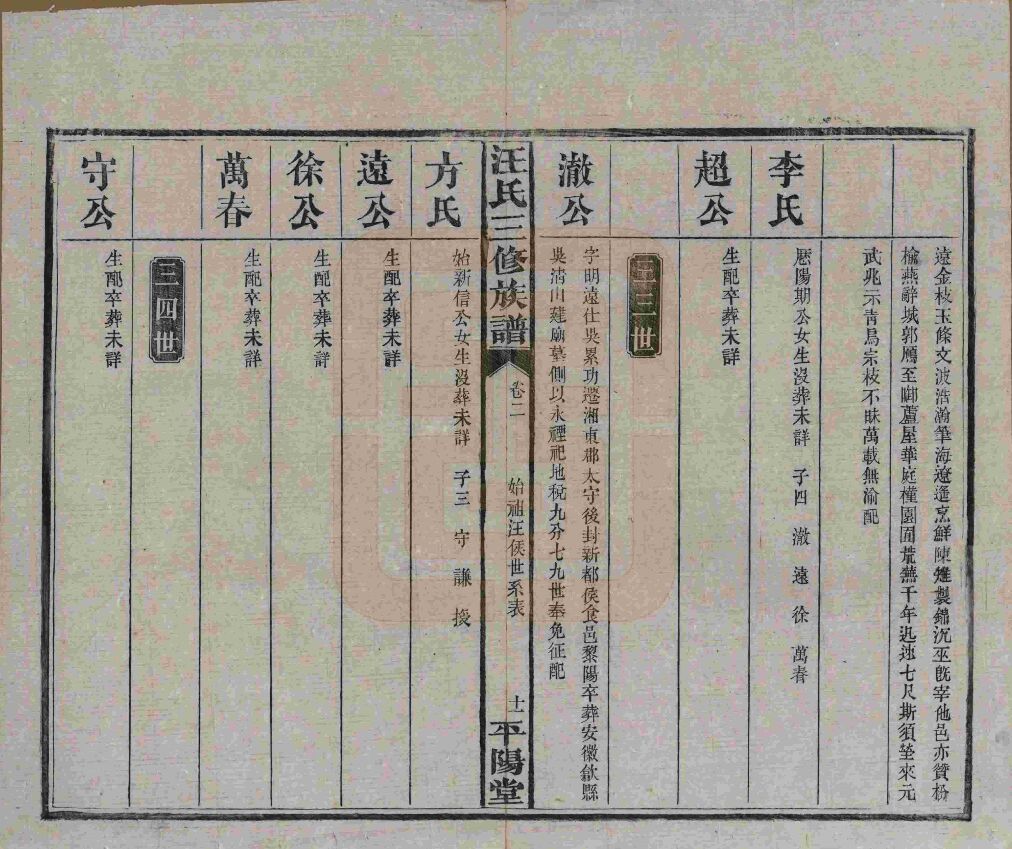 遠金枝玉條文波浩瀚筆海遼遙烹鮮陳雉製錦沉巫既宰他邑亦贊枌
榆燕辭城郭鴈至啣蘆屋華庭權園囿荒蕪千年迅速七尺斯須塋來元
武兆示青烏宗枝不昧萬載無渝配
李氏
歷陽期公女生沒葬未詳 子四 澈 遠 徐 萬春
超公
生配卒葬未詳
三三世
澈公
字明遠仕吳累功遷湘東郡太守後封新都侯食邑黎陽卒葬安徽歙縣
吳清山建廟墓側以永禋祀地稅九分七九世奉免征配
汪氏三修族譜
卷二
始祖汪侯世系表
十一
平陽堂
方氏
始新信公女生沒葬未詳 子三 守 謙 授
遠公
生配卒葬未詳
徐公
生配卒葬未詳
萬春
生配卒葬未詳
三四世
守公
生配卒葬未詳